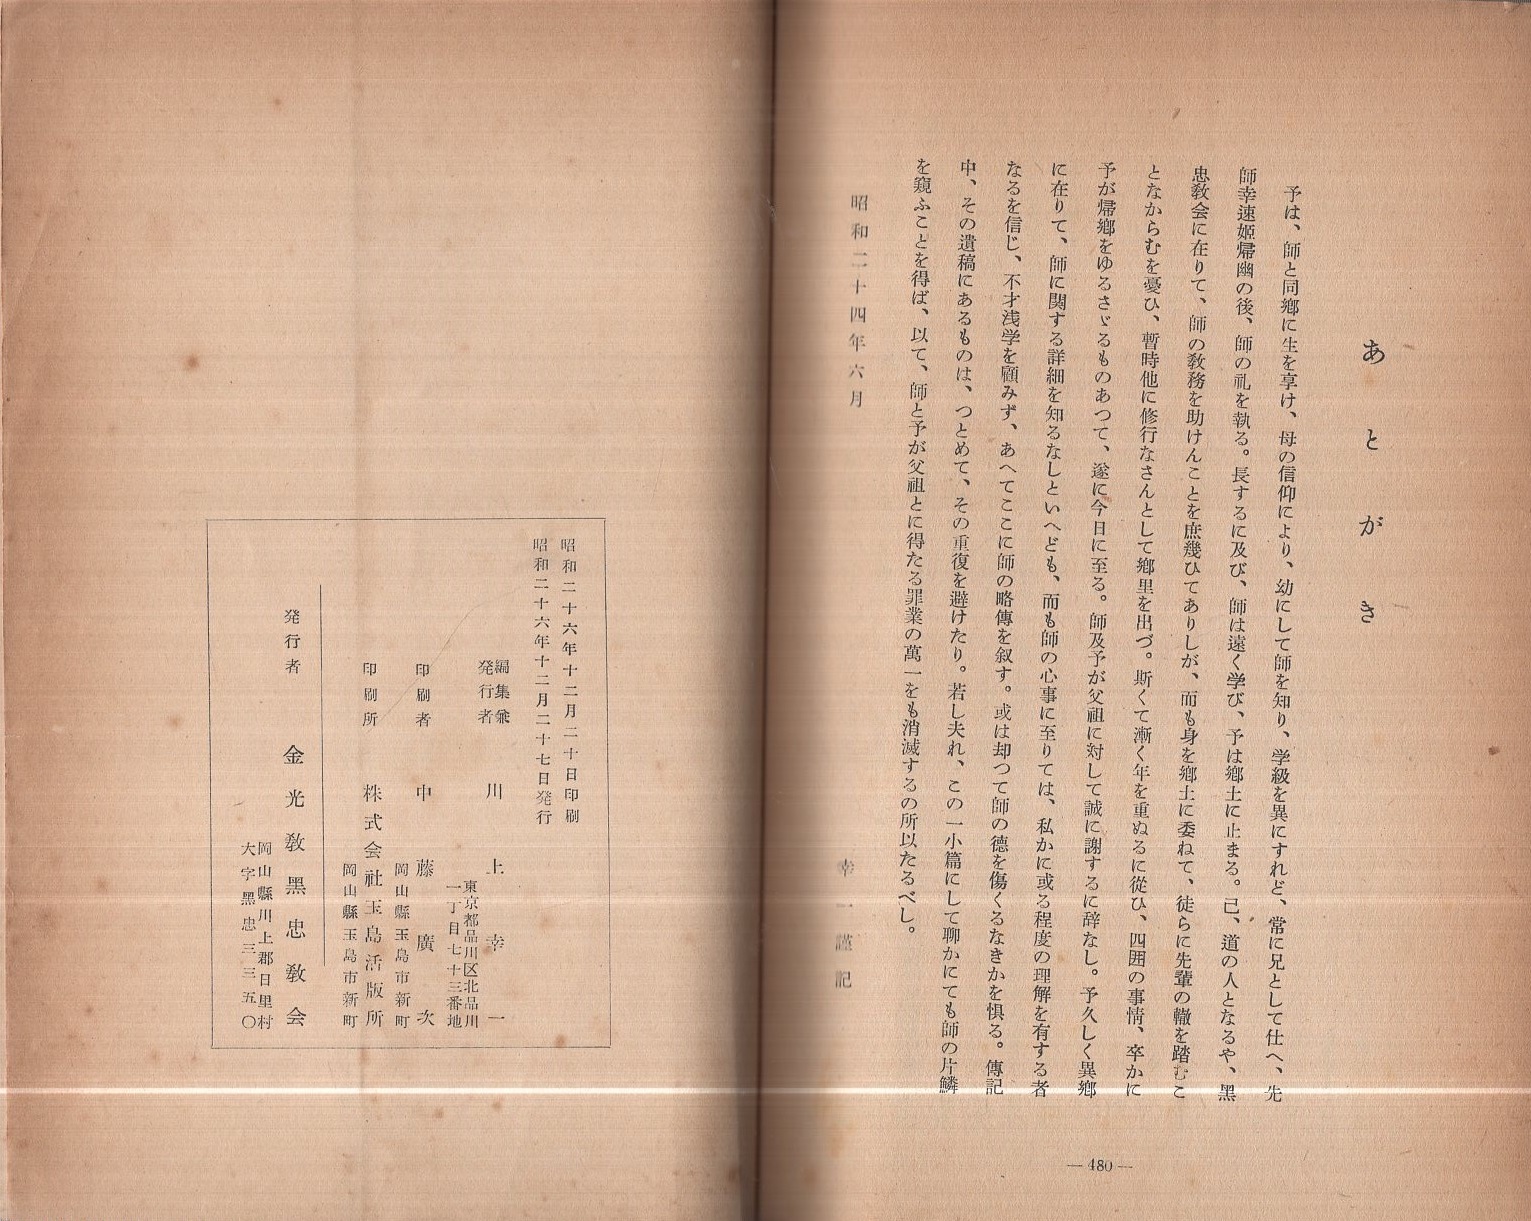 あとがき
予は、師と同鄕に生を享け、母の信仰により、幼にして師を知り、学級を異にすれど、常に兄として仕へ、先
師幸速姬帰幽の後、師の礼を執る。長するに及び、師は遠く学び、予は鄕土に止まる。己、道の人となるや、黑
忠敎会に在りて、師の敎務を助けんことを庶幾ひてありしが、而も身を鄕土に委ねて、徒らに先輩の轍を踏むこ
となからむを憂ひ、暫時他に修行なさんとして鄕里を出づ。斯くて漸く年を重ぬるに從ひ、四囲の事情、卒かに
予が帰鄕をゆるさゞるものあつて、遂に今日に至る。師及予が父祖に対して誠に謝するに辞なし。予久しく異鄕
に在りて、師に関する詳細を知るなしといへども、而も師の心事に至りては、私かに或る程度の理解を有する者
なるを信じ、不才浅学を顧みず、あへてここに師の略傳を叙す。或は却つて師の德を傷くるなきかを惧る。傳記
中、その遺稿にあるものは、つとめて、その重復を避けたり。若し夫れ、この一小篇にして聊かにても師の片鱗
を窺ふことを得ば、以て、師と予が父祖とに得たる罪業の萬一をも消滅するの所以たるべし。
昭和二十四年六月
幸一謹記
— 480 —
昭和二十六年十二月二十日印刷
昭和二十六年十二月二十七日発行
編集兼
発行者 川上幸一
東京都品川区北品川
一丁目七十三番地
印刷者 中藤廣次
岡山縣玉島市新町
印刷所 株式会社玉島活版所
岡山縣玉島市新町
発行者 金光敎黑忠敎会
岡山縣川上郡日里村
大字黑忠三三五〇